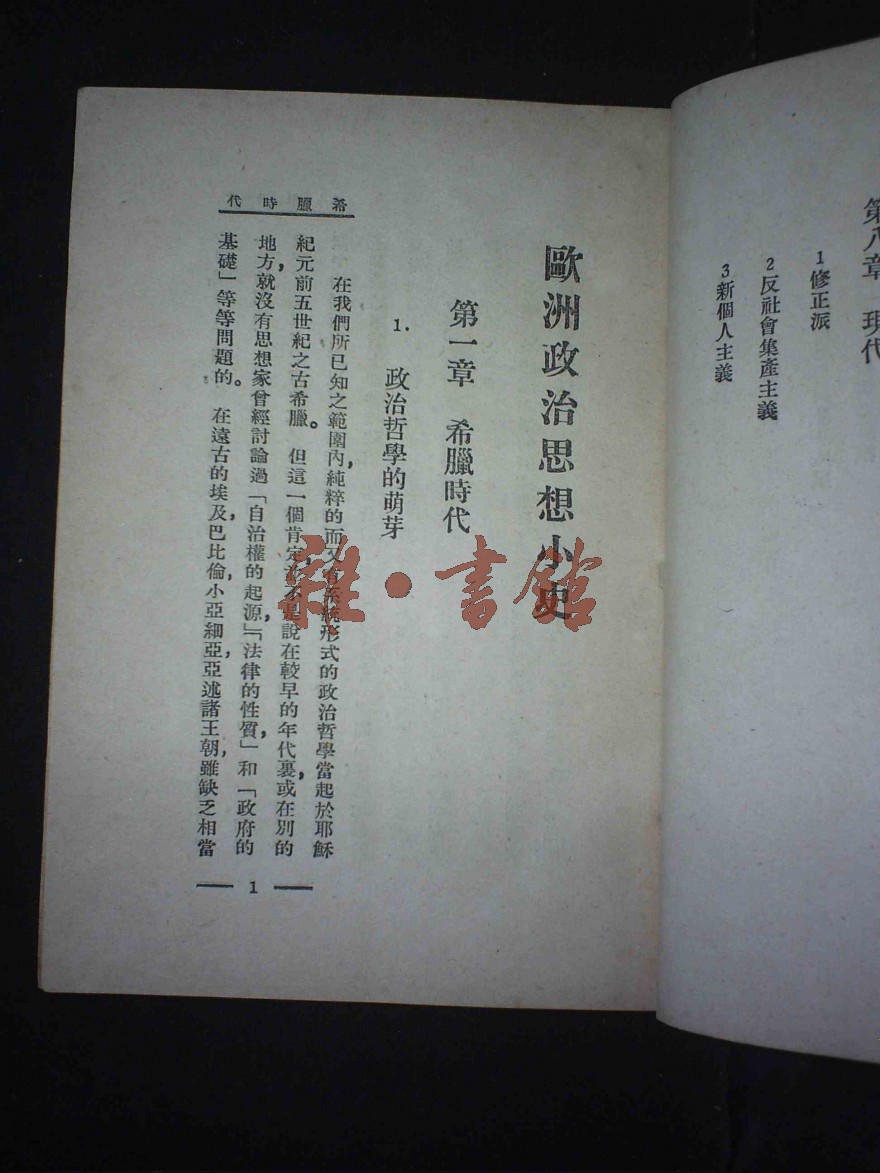 第八章 現代
1 修正派
2 反社會集產主義
3 新個人主義
歐洲政治思想小史
第一章 希臘時代
1. 政治哲學的萌芽
在我們所已知之範圍內，純粹的而又有系統形式的政治哲學當起於耶穌
紀元前五世紀之古希臘。但這一個肯定並不是說在較早的年代裏，或在別的
地方，就沒有思想家曾經討論過「自治權的起源」，「法律的性質」，和「政府的
基礎」等等問題的。在遠古的埃及，巴比倫，小亞細亞，亞述諸王朝，雖缺乏相當
希臘時代
1
雜·書館